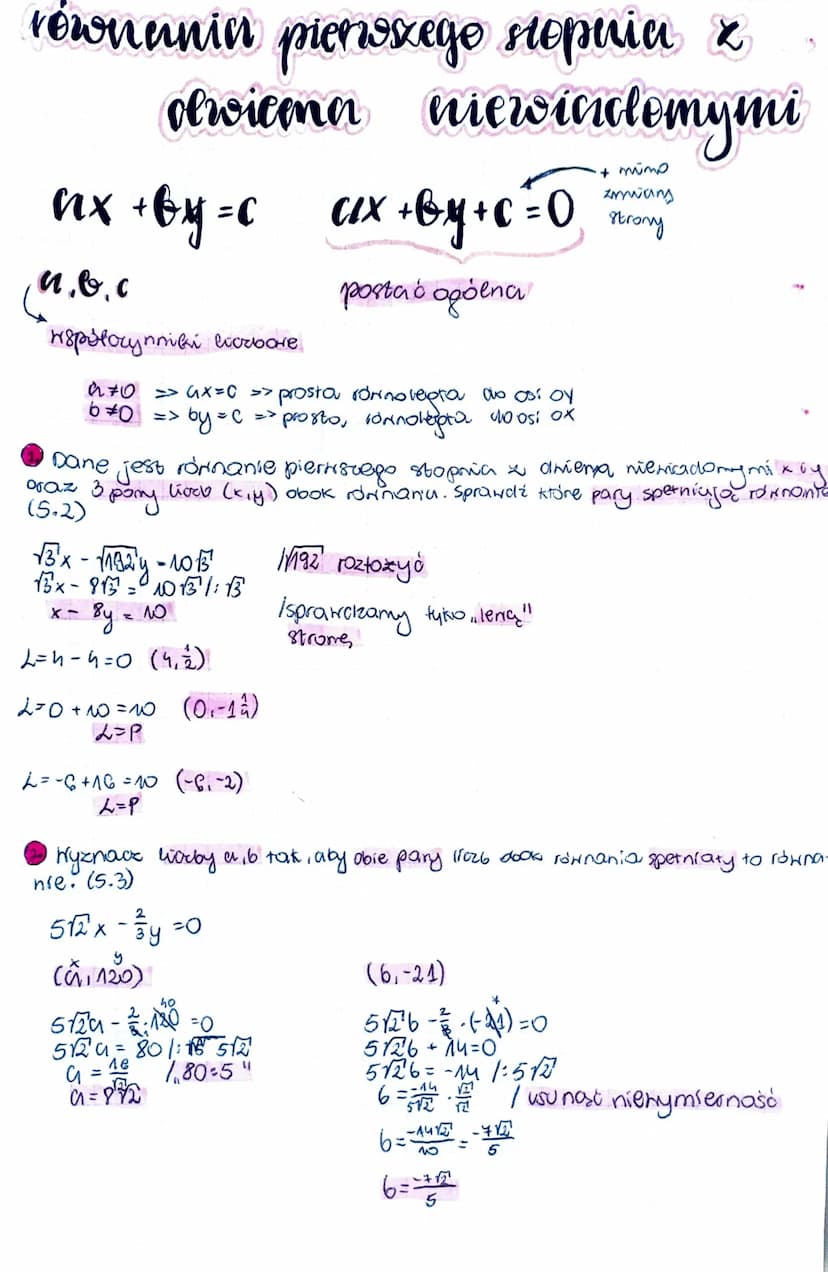 równania pierwszego stopnia z
dwiema niewiadomymi
ax + by = c
ax + by + c = 0
+ mimo
zmiany
strony
a, b, c
postać ogólna
współczynniki liczbowe
a ≠ 0 => ax = c => prosta równoległa do osi OY
b ≠ 0 => by = c => prosta równoległa do osi OX
1. Dane jest równanie pierwszego stopnia z dwiema niewiadomymi x i y
oraz 3 pary liczb (x,y) obok równania. Sprawdź które pary spełniają równanie
(5.2)
√3x - √192y = 10√3 /√192 rozłożyć
√3x - 8√3 = 10√3 /:√3
x - 8y = 10 /sprawdzamy tylko „lewą"
stronę
L = 4 - 4 = 0 (4, 1/2)
L = 0 + 10 = 10 (0, -1 1/4)
L = P
L = -6 + 16 = 10 (-6, -2)
L = P
2. Wyznacz liczby a, b tak, aby obie pary liczb obok równania spełniały to równa-
nie. (5.3)
5√2x - 2/3y = 0
x y
(a, 120)
5√2a - 2/3 · 120 = 0
40
5√2a = 80 /: 5√2
a = 16/√2 /„80:5"
a = 8√2
(b, -21)
5√2b - 2/3 · (-21) = 0
5√2b + 14 = 0
5√2b = -14 /: 5√2
b = -14/5√2 · √2/√2 / usunąć niewymierność
b = -14√2/10 = -7√2/5
b = -7√2/5